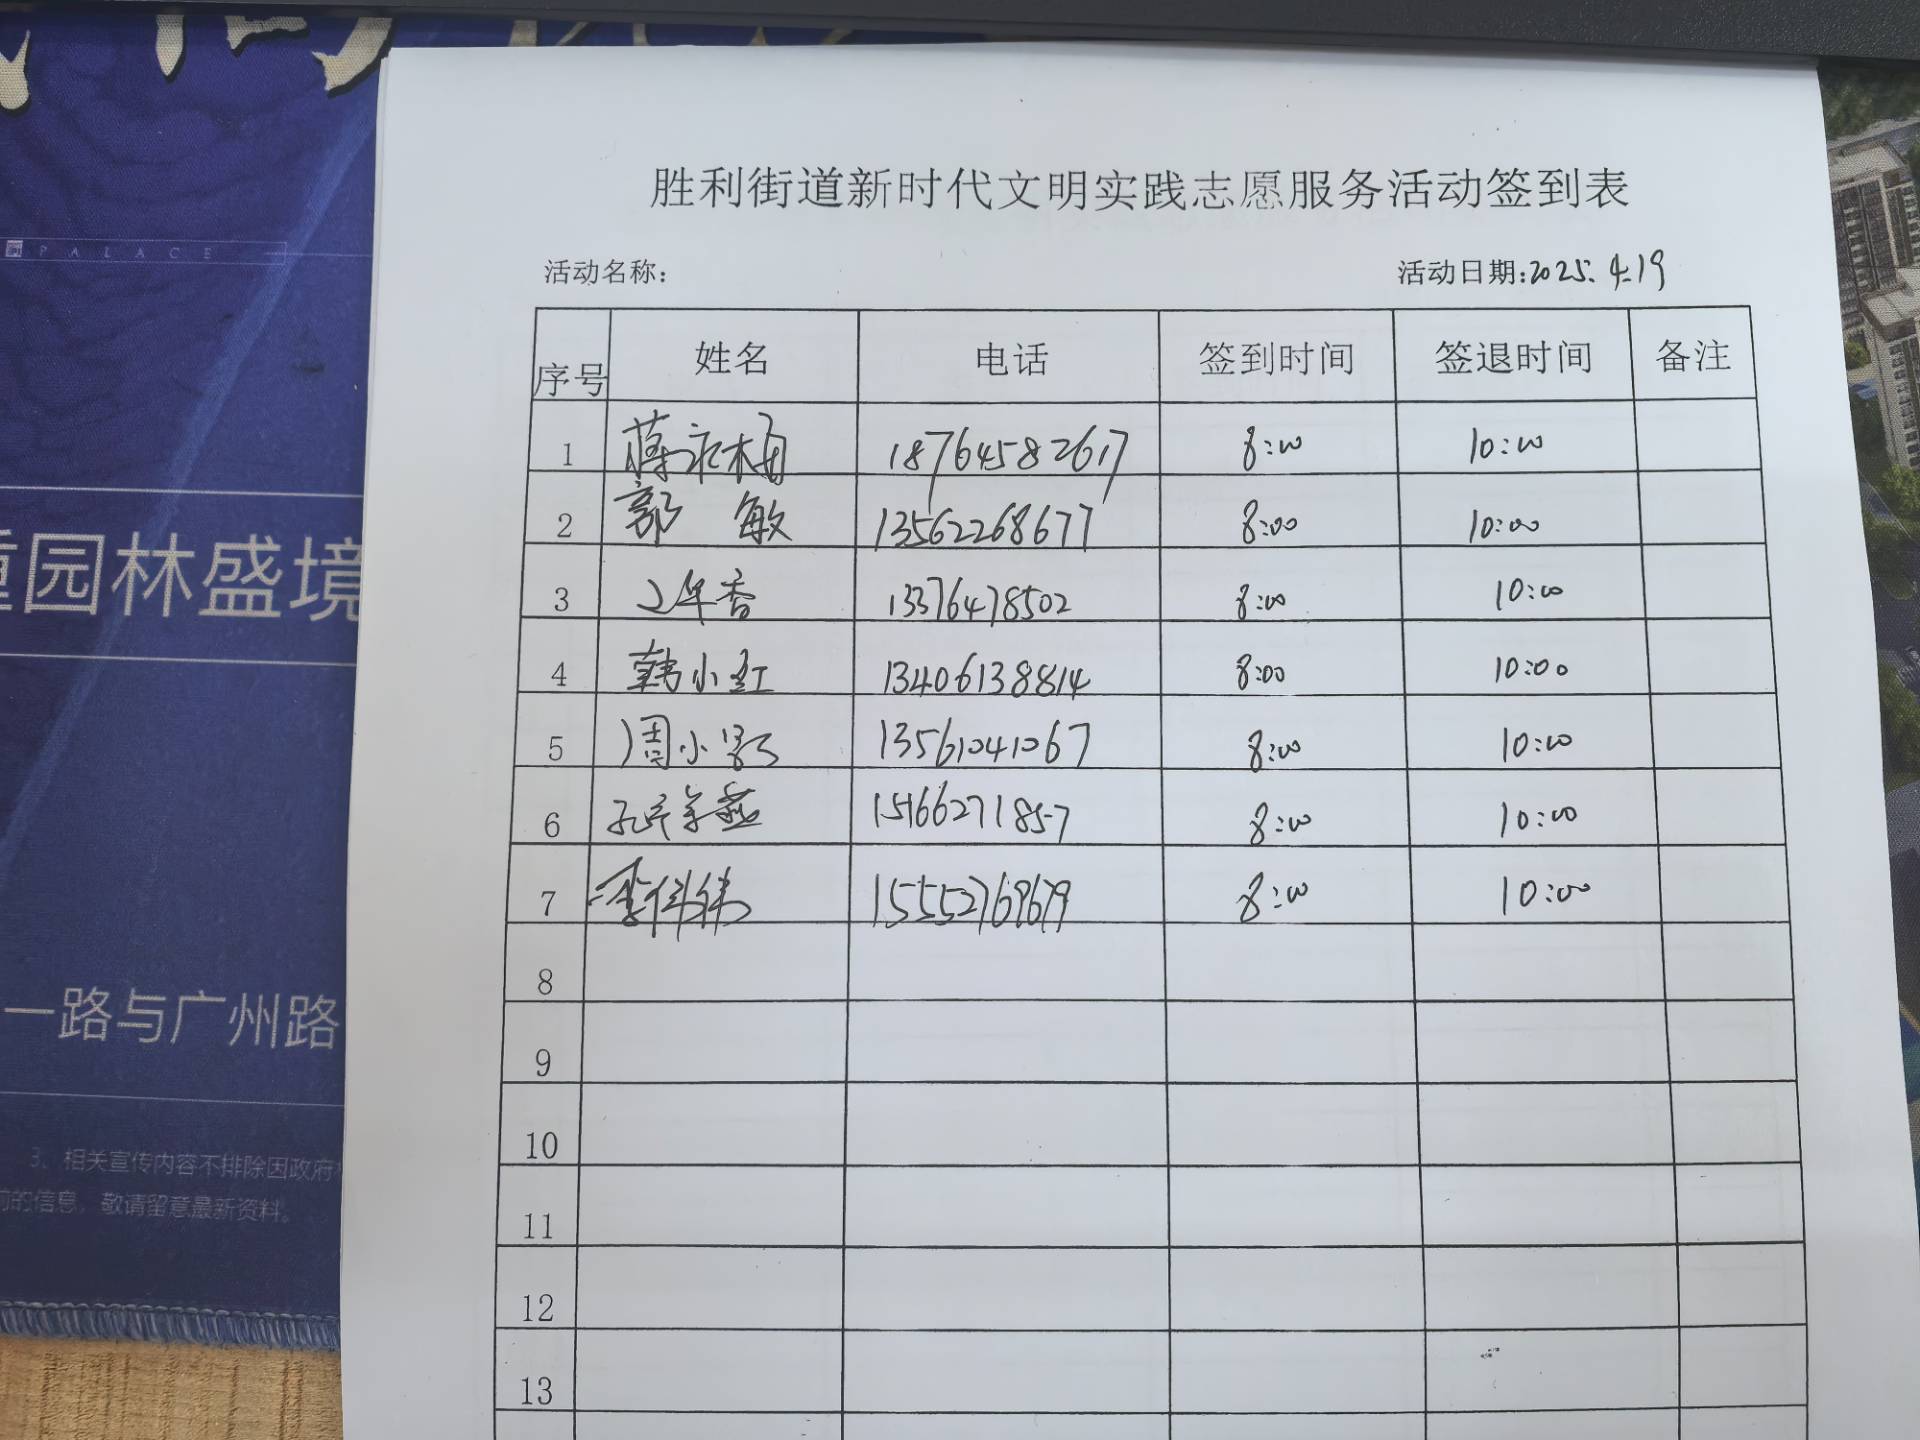 PALACE
园林盛境
一路与广州路
3、相关宣传内容不排除因政府
前的信息，敬请留意最新资料。
胜利街道新时代文明实践志愿服务活动签到表
活动名称： 活动日期:2025.4.19
序号 姓名 电话 签到时间 签退时间 备注
1 蒋永梅 18764582617 8:00 10:00
2 郭敏 13562268677 8:00 10:00
3 13376478502 8:00 10:00
4 韩小红 13406138814 8:00 10:00
5 周小 13561041067 8:00 10:00
6 15166271857 8:00 10:00
7 李伟伟 15552769679 8:00 10:00
8
9
10
11
12
13